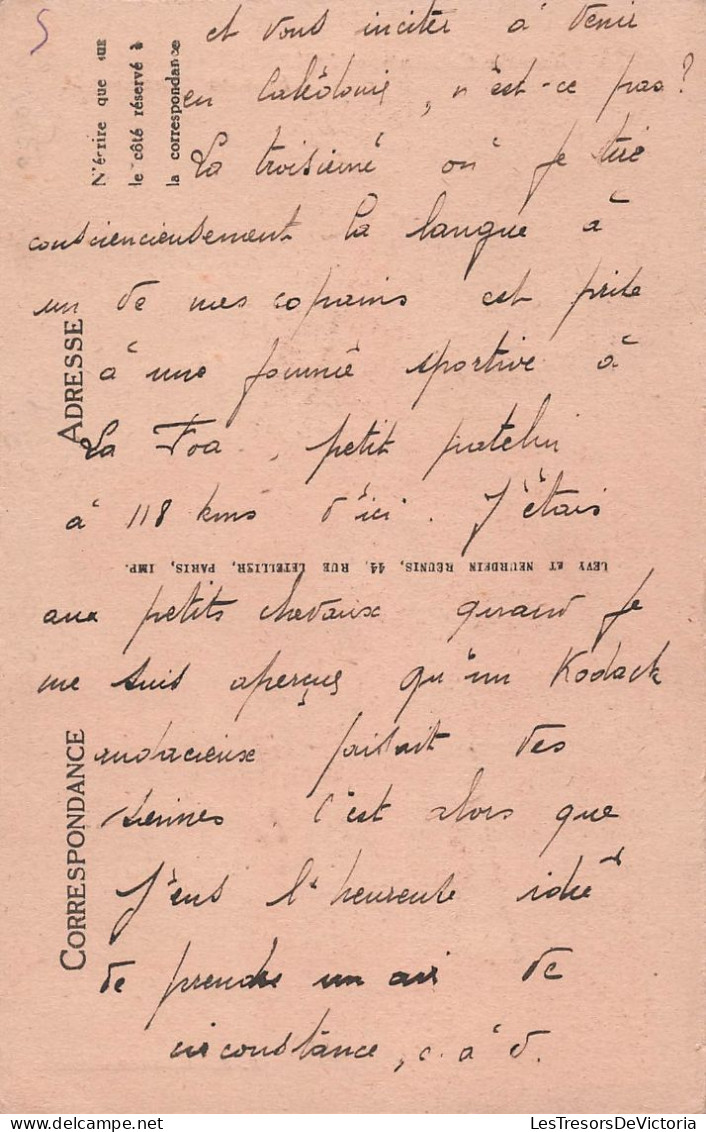 5
et vous inciter à venir
en Calédonie, n'est-ce pas?
La troisième où je tire
consciencieusement la langue à
un de mes copains est prise
à une journée sportive à
La Foa, petit patelin
à 118 kms d'ici. J'étais
aux petits chevaux quand je
me suis aperçus qu'un Kodack
audacieux faisait des
siennes. C'est alors que
J'eus l'heureuse idée
de prendre un air de
circonstance, c. à d.
N'écrire que sur
le côté réservé à
la correspondance
ADRESSE
LEVY ET NEURDEIN RÉUNIS, 44, RUE LETELLIER, PARIS, IMP.
CORRESPONDANCE
LesTresorsDeVictoria
delcampe.net